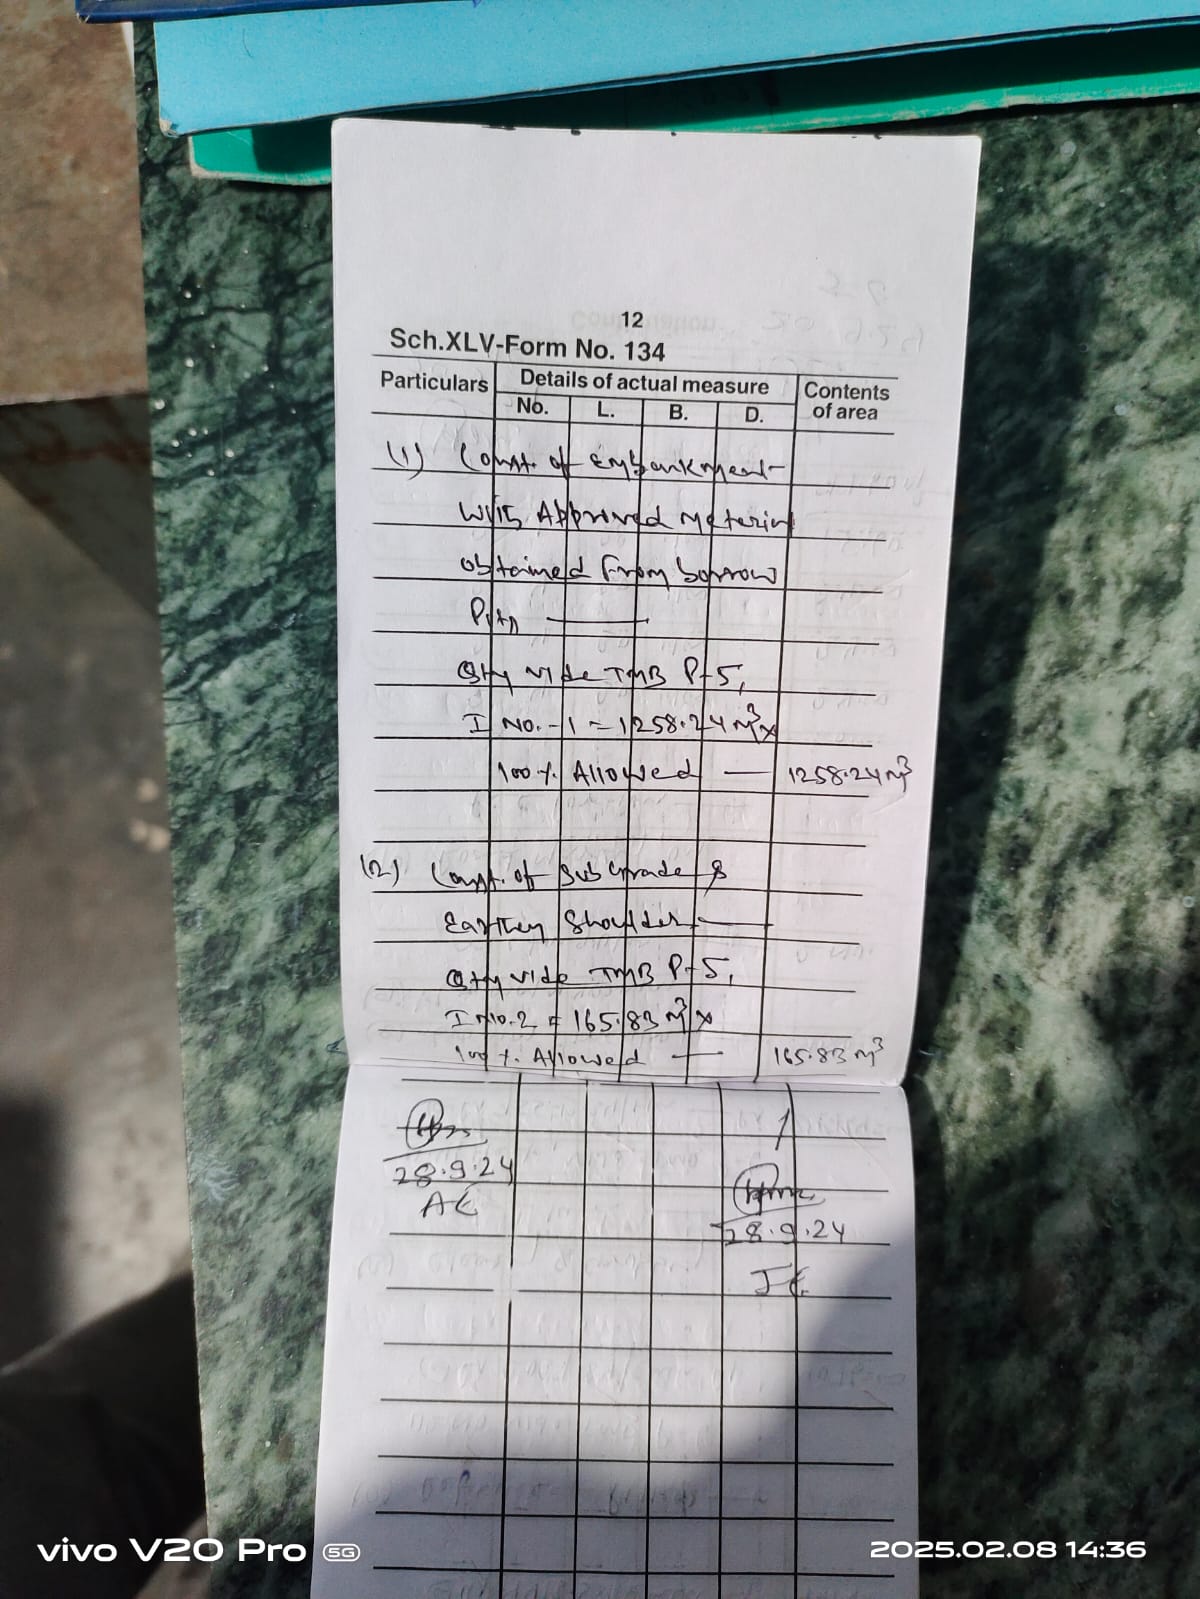 12
Sch.XLV-Form No. 134
Particulars Details of actual measure Contents of area
No. L. B. D.
(1) Const. of Embankment
With Approved Material
obtained From borrow
Pits
Qty vide TMB P-5,
I NO.-1 = 1258.24 M³ x
100 %. Allowed — 1258.24 M³
(2) Const. of Sub Grade &
Earthen Shoulder —
Qty vide TMB P-5,
I No.2 = 165.83 M³ x
100 %. Allowed — 165.83 M³
28.9.24
AE
28.9.24
JE
vivo V20 Pro 5G
2025.02.08 14:36